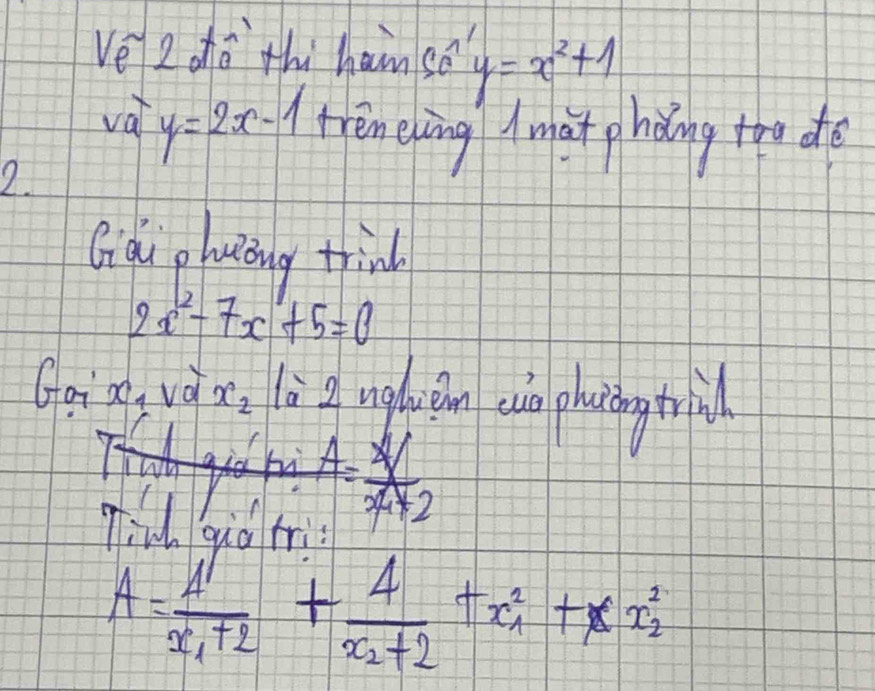 Vẽ 2 đồ thị hàm số y = x²+1
và y = 2x-1 trên cùng 1 mặt phẳng tọa độ
2.
Giải phương trình
2x² - 7x + 5 = 0
Gọi x₁ và x₂ là 2 nghiệm của phương trình
Tính giá trị A = 4/(x₁+2)
Tính giá trị:
A = 4/(x₁+2) + 4/(x₂+2) + x₁² + x₂²